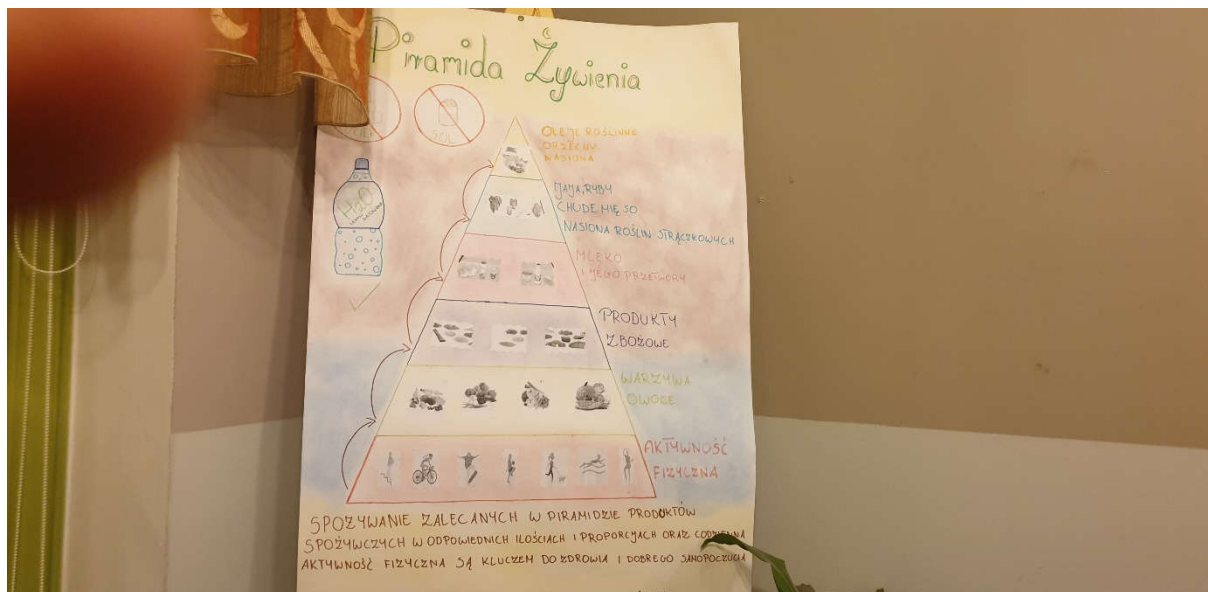 Piramida Żywienia
SÓL
H2O
OLEJE ROŚLINNE
ORZECHY
NASIONA
JAJA, RYBY
CHUDE MIĘSO
NASIONA ROŚLIN STRĄCZKOWYCH
MLEKO
I JEGO PRZETWORY
PRODUKTY
ZBOŻOWE
WARZYWA
OWOCE
AKTYWNOŚĆ
FIZYCZNA
SPOŻYWANIE ZALECANYCH W PIRAMIDZIE PRODUKTÓW
SPOŻYWCZYCH W ODPOWIEDNICH ILOŚCIACH I PROPORCJACH ORAZ CODZIENNA
AKTYWNOŚĆ FIZYCZNA SĄ KLUCZEM DO ZDROWIA I DOBREGO SAMOPOCZUCIA